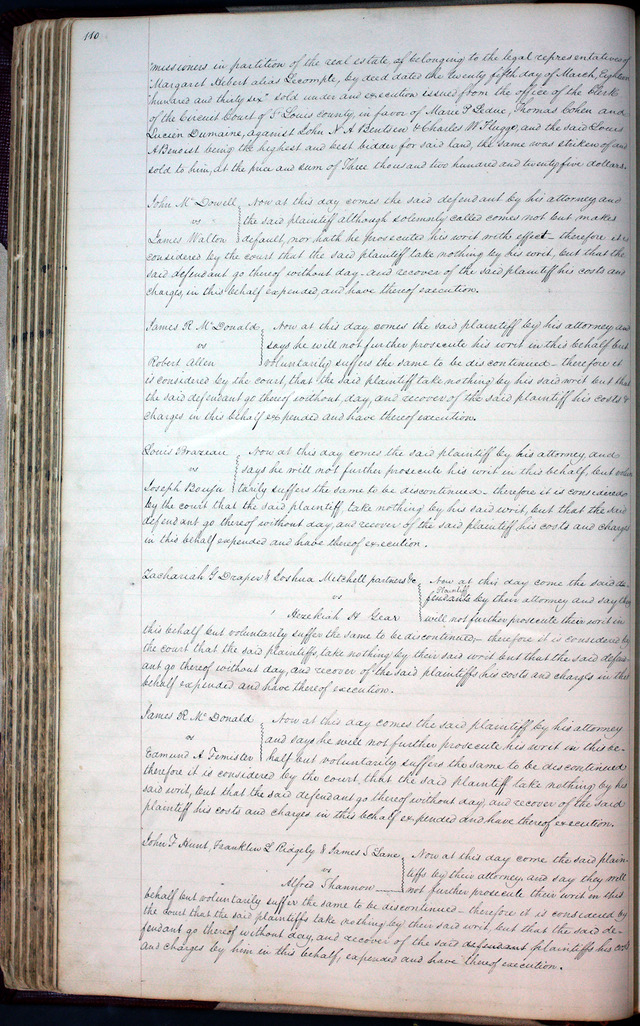 110
missioners in partition of the real estate of belonging to the legal representatives of
Margaret Hebert alias Lecompte, by deed dated the twenty fifth day of March, Eighteen
hundred and thirty six" sold under and execution issued from the office of the Clerk
of the Circuit Court of St Louis county, in favor of Marie P Leduc, Thomas Cohen and
Lucien Dumaine, against John N A Bentsen & Charles W and the said Louis
A Benoist being the highest and best bidder for said land, the same was striken off and
sold to him, at the price and sum of Three thousand two hundred and twenty five dollars.
John McDowell Now at this day comes the said defendant by his attorney and
vs the said plaintiff although solemnly called comes not but makes
James Walton default, nor hath he prosecuted his writ with effect - therefore it is
considered by the court that the said plaintiff take nothing by his writ, but that the
said defendant go thereof without day - and recover of the said plaintiff his costs and
charges, in this behalf expended, and have thereof execution.
James R McDonald Now at this day comes the said plaintiff by his attorney and
vs says he will not further prosecute his writ in this behalf but
Robert Allen voluntarily suffers the same to be discontinued - therefore it
is considered by the court, that the said plaintiff take nothing by his said writ but that
the said defendant go thereof without, day, and recover of the said plaintiff his costs &
charges in this behalf expended and have thereof execution.
Louis Brazeau Now at this day comes the said plaintiff by his attorney, and
vs says he will not further prosecute his writ in this behalf, but volun
Joseph tarily suffers the same to be discontinued - therefore it is considered
by the court that the said plaintiff, take nothing by his said writ, but that the said
defendant go thereof without day, and recover of the said plaintiff, his costs and charges
in this behalf expended and have thereof execution.
Zachariah G Draper & Joshua Mitchell partners &c Now at this day come the said de-
plaintiff
vs fendants by their attorney and say they
Hezekiah H Gear will not further prosecute their writ in
this behalf but voluntarily suffer the same to be discontinued, - therefore it is considered by
the court that the said plaintiffs, take nothing by their said writ but that the said defen-
ant go thereof without day, and recover of the said plaintiffs his costs and charges in this
behalf expended and have thereof execution.
James R McDonald Now at this day comes the said plaintiff by his attorney
vs and says he will not further prosecute his writ in this be-
Edmund A half but voluntarily suffers the same to be discontinued
therefore it is considered by the court, that the said plaintiff take nothing by his
said writ, but that the said defendant go thereof without day, and recover of the said
plaintiff his costs and charges in this behalf expended and have thereof execution.
John F Hunt, Franklin L Ridgely & James S Lane Now at this day come the said plain-
vs tiffs by their attorney and say they will
Alfred Shannon not further prosecute their writ in this
behalf but voluntarily suffer the same to be discontinued - therefore it is considered by
the court that the said plaintiffs take nothing by their said writ, but that the said de-
fendant go thereof without day, and recover of the said defendant plaintiffs his costs
and charges by him in this behalf, expended and have thereof execution.